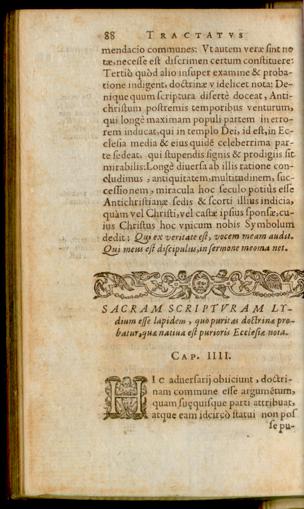 88 TRACTATVS
mendacio communes: Vt autem veræ sint no
tæ, necesse est discrimen certum constituere:
Tertiò quòd alio insuper examine & proba-
tione indigent, doctrinæ videlicet nota: De-
nique quum scriptura disertè doceat, Anti-
christum postremis temporibus venturum,
qui longè maximam populi partem in erro-
rem inducat, qui in templo Dei, id est, in Ec-
clesia media & eius quidẽ celeberrima par-
te sedeat, qui stupendis signis & prodigiis sit
mirabilis: Longè diuersã ab illis ratione con-
cludimus, antiquitatem, multitudinem, suc-
cessionem, miracula hoc seculo potiùs esse
Antichristianæ sedis & scorti illius indicia,
quàm vel Christi, vel castæ ipsius sponsæ, cu-
ius Christus hoc vnicum nobis Symbolum
dedit: Qui ex veritate est, vocem meam audit.
Qui meus est discipulus, in sermone meo ma net.
SACRAM SCRIPTVRAM LY-
dium esse lapidem, quo puritas doctrinæ pro-
batur, quæ natiua est purioris Ecclesiæ nota.
CAP. IIII.
HIc aduersarij obiiciunt, doctri-
nam commune esse argumẽtum,
quam suęquisque parti attribuat,
atque eam idcircò statui non pos
se pu-